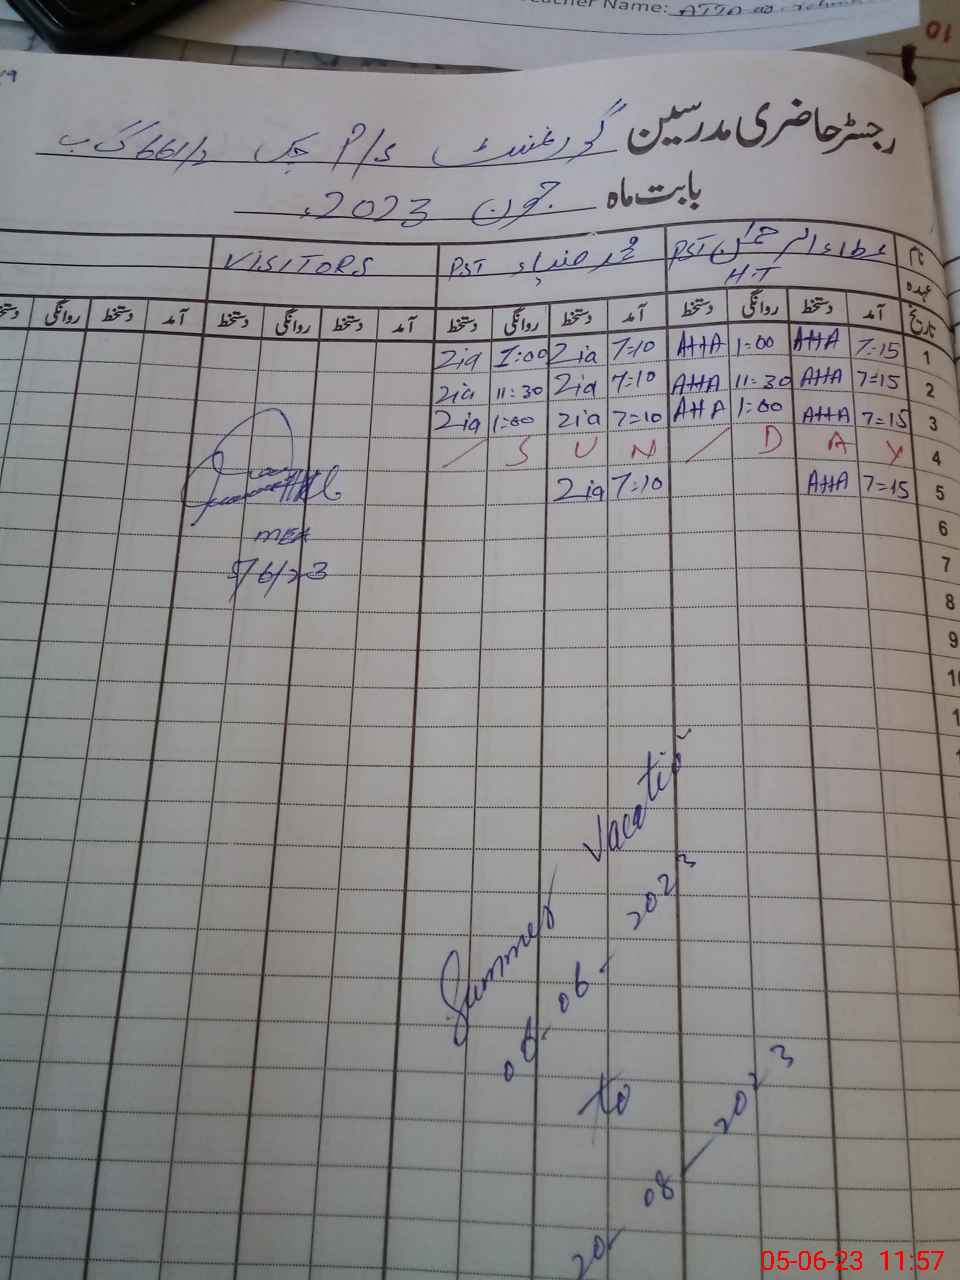 Teacher Name: ATTA
10
رجسٹر حاضری مدرسین گورنمنٹ P/S چک 661/2 گ ب
بابت ماہ جون 2023ء
نام عطاء الرحمٰن PST محمد ضیاء PST VISITORS
عہدہ H.T
تاریخ آمد دستخط روانگی دستخط آمد دستخط روانگی دستخط آمد دستخط روانگی دستخط آمد دستخط روانگی
Zia 1:00 Zia 7=10 AttA 1:00 AttA 7=15 1
Zia 11:30 Zia 7=10 AttA 11:30 AttA 7=15 2
Zia 1:00 Zia 7=10 AttA 1:00 AttA 7=15 3
/ S U N / D A Y 4
Zia 7=10 AttA 7=15 5
6
MEA
7
5/6/23
8
9
Summer Vacatio
06-06-2023
to
20-08-2023
05-06-23 11:57